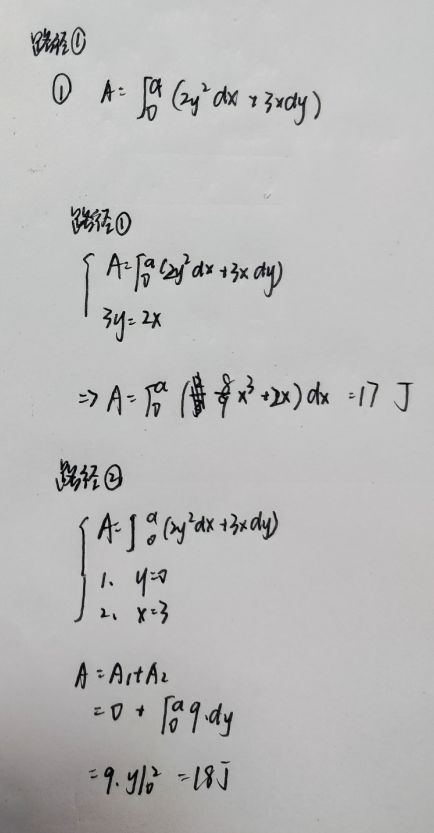 路径①
① A=∫₀ᵃ(2y²dx+3xdy)
路径①
A=∫₀ᵃ(2y²dx+3xdy)
3y=2x
=> A=∫₀ᵃ(8/9x³+2x)dx=17 J
路径②
A=∫₀ᵃ(2y²dx+3xdy)
1、y=0
2、x=3
A=A₁+A₂
=0+∫₀ᵃ9.dy
=9.y|₀²=18J